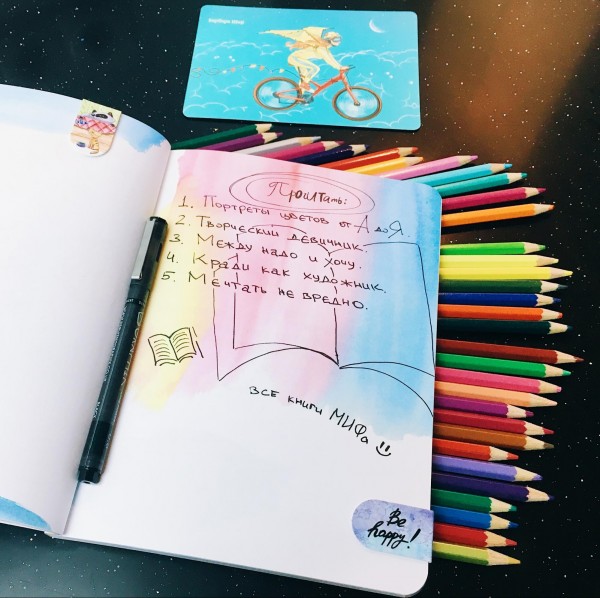 Барбара Шер
Прочитать:
1. Портреты цветов от А до Я.
2. Творческий девичник
3. Между надо и хочу.
4. Кради как художник.
5. Мечтать не вредно.
все книги МИФа
Be
happy!